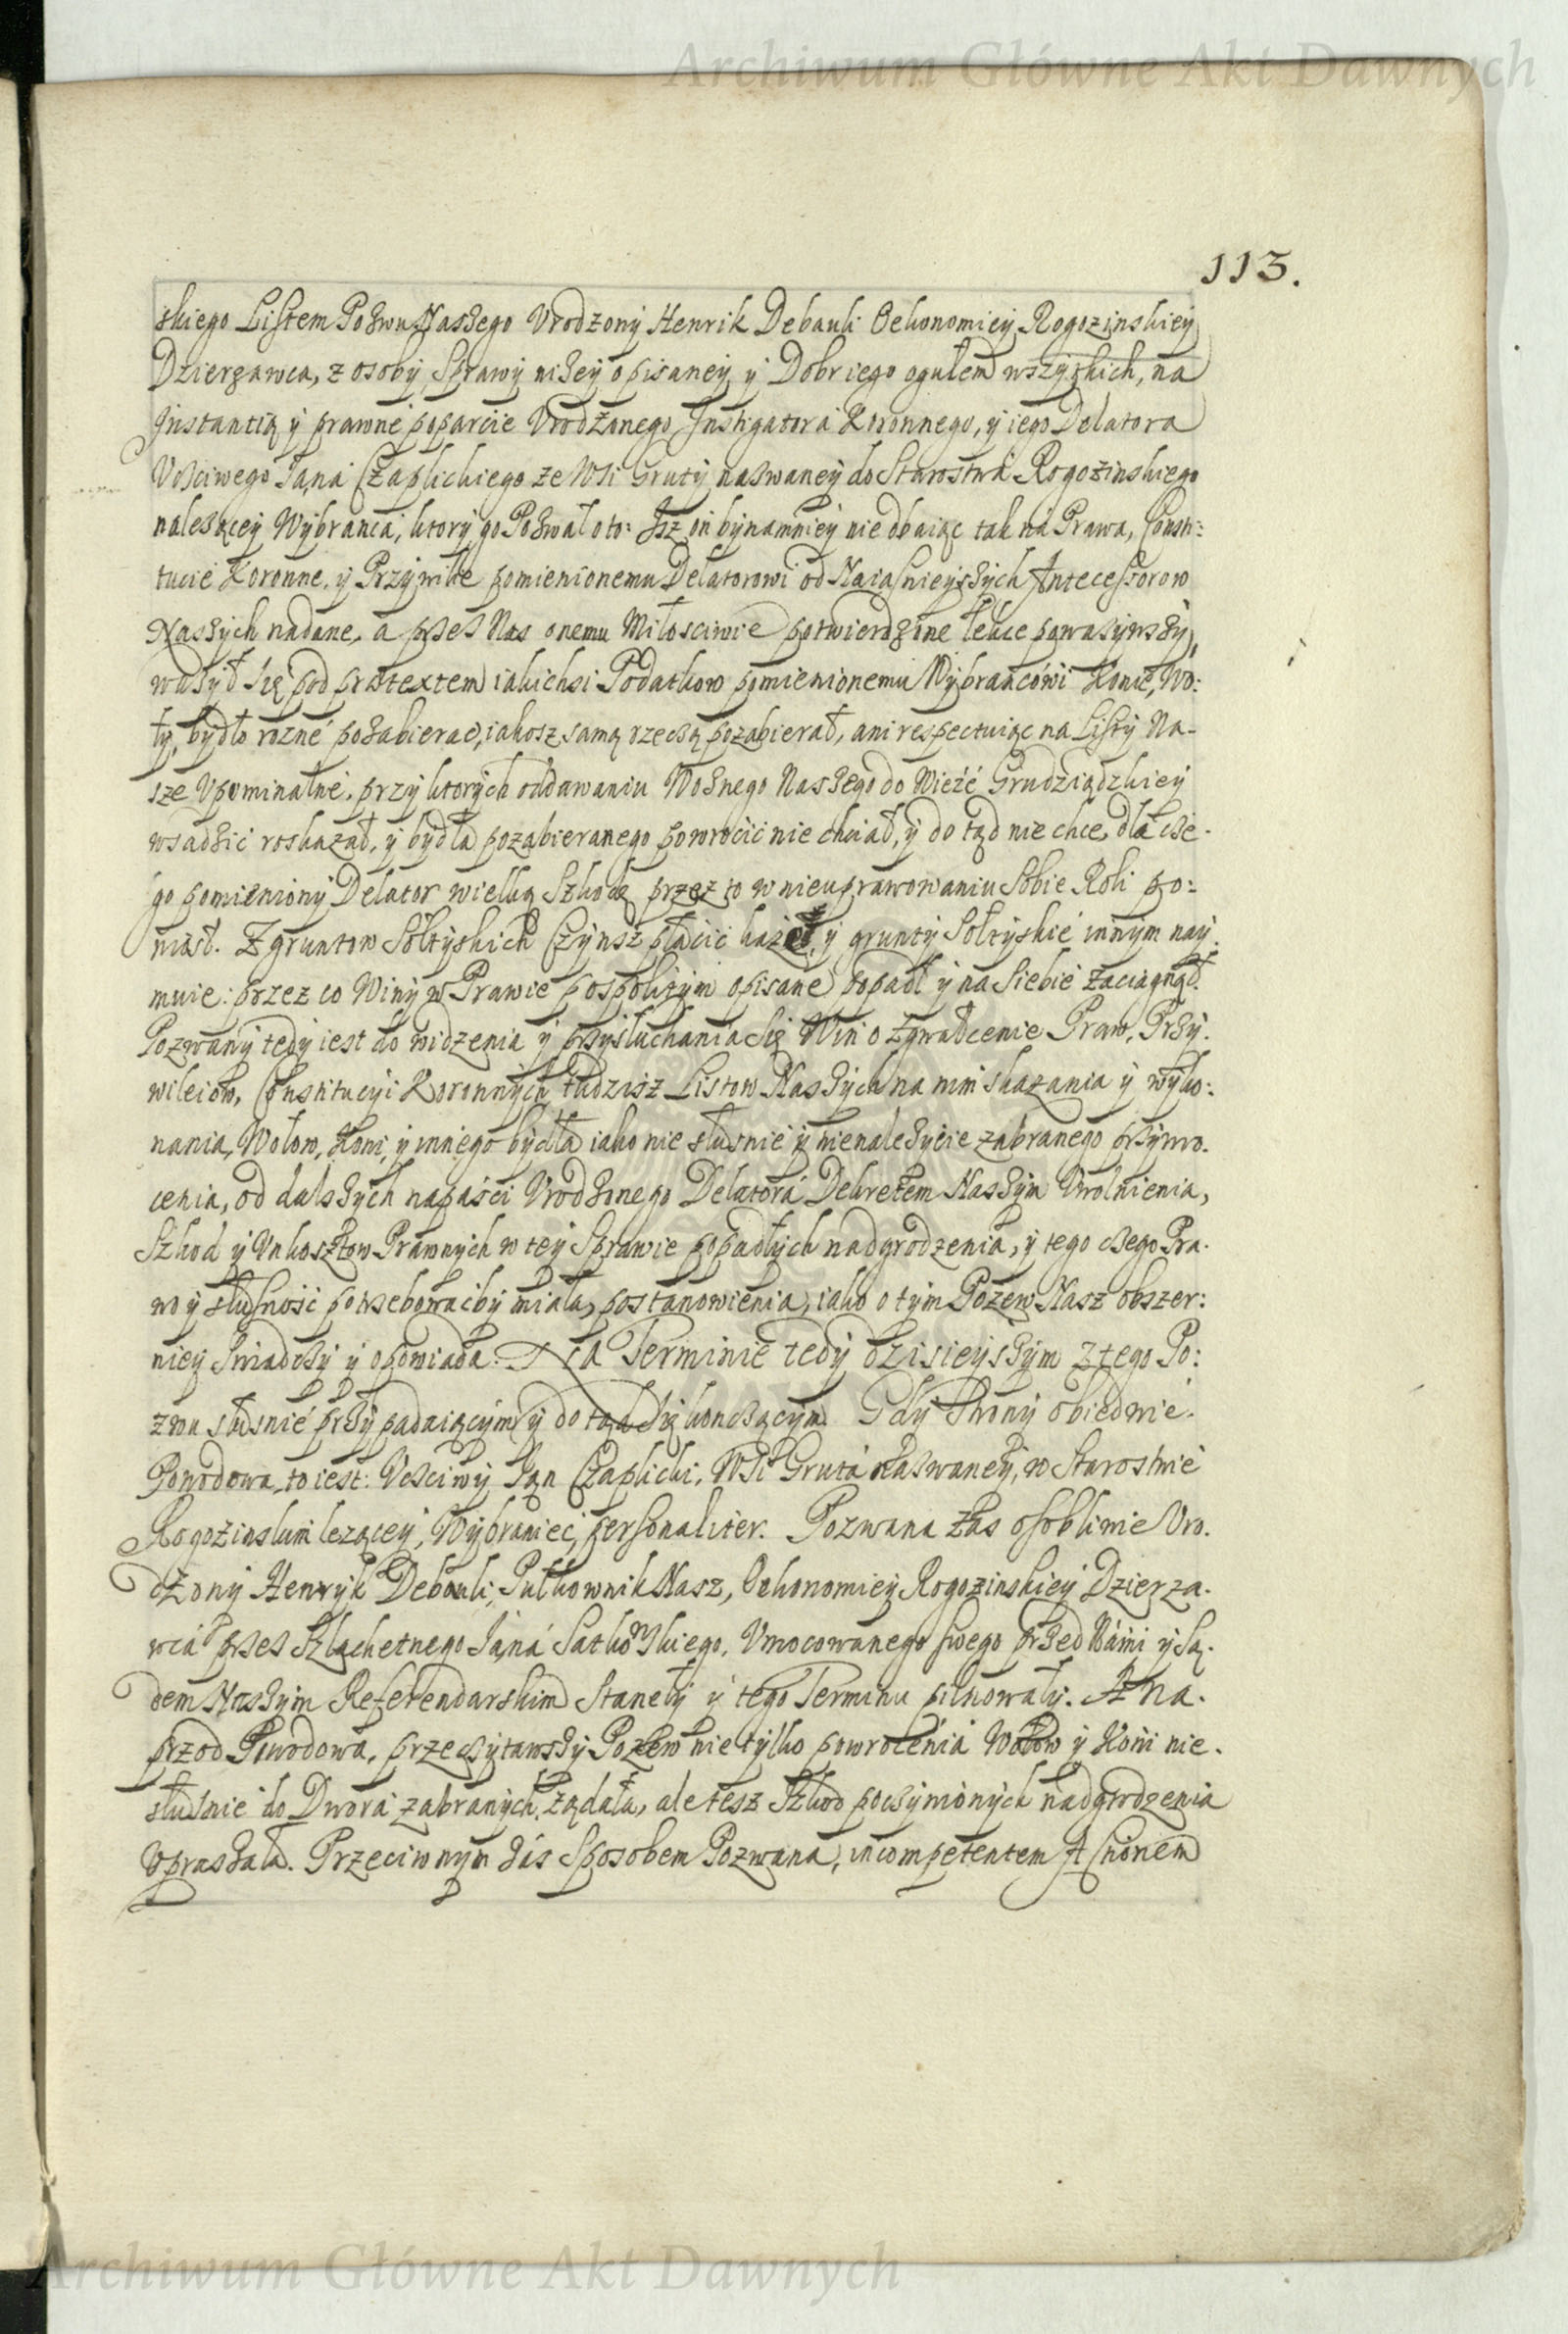 Archiwum Główne Akt Dawnych
113.
skiego Listem Pozwu Naszego Vrodzony Henrik Debauli Oekonomiey Rogozinskiey
Dzierzawca, z osoby Sprawy niżey opisaney y Dobr iego ogułem wszyskich, na
Jnstantią y prawne poparcie Vrodzonego Jnstigatora Koronnego, y iego Delatora
Vcciwego Jana Czaplickiego ze Wsi Gruty nazwaney do Starostwa Rogozinskiego
należącey Wybranca, ktory go Pozwał o to: Jsz on bynamniey nie dbaiąc tak na Prawa, Consti:
tucie Koronne, y Przywileie pomienionemu Delatorowi od Naiaśnieyszych Antecessorow
Naszych nadane, a przez Nas onemu Miłosciwie potwierdzone lekce poważywszy,
ważył się pod praetextem iakichsi Podatkow pomienionemu Wybrancowi Konie, Wo:
ły, bydło rozne pozabierac, iakosz samą rzeczą pozabierał, ani respectuiąc na Listy Na-
sze Vpominalne, przy ktorych oddawaniu Woznego Naszego do Wieże Grudziądzkiey
wsadzić roskazał, y bydła pozabieranego powrocić nie chciał, y do tąd nie chce, dla cze-
go pomieniony Delator wielką Szkodę przez to w nieuprawowaniu Sobie Roli po:
niosł. Z gruntow Sołtyskich Czynsz płacić każe, y grunty Sołtyskie innym nay-
muie: przez co Winy w Prawie pospolitym opisane popadł y na siebie zaciągnął.
Pozwany tedy iest do widzenia y przysłuchania się Win o zgwałcenie Praw, Przy-
wileiow, Constitucyi Koronnych tudzisz Listow Naszych na nim skazania y wyko:
nania, Wołow, Koni, y innego bydła iako nie słusnie y nienależycie zabranego przywro-
cenia, od dalszych napaści Vrodzonego Delatora Dekretem Naszym Vwolnienia,
Szkod y Vnkosztow Prawnych w tey Sprawie popadłych nadgrodzenia, y tego czego Pra-
wo y słusność potrzebowaćby miała, postanowienia, iako o tym Pozew Nasz obszer:
niey świadczy y opowiada. Na Terminie tedy dzisieyszym z tego Po:
zwu słusnie przypadaiącym y do tąd się konczącym. Gdy Strony obiedwie.
Powodowa, to iest: Vcciwy Jan Czaplicki, Wsi Gruta nazwaney, w Starostwie
Rogozinskim leżącey, Wybraniec, personaliter. Pozwana zas osobliwie Vro-
dzony Henryk Debauli, Pułkownik Nasz, Oekonomiey Rogozinskiey Dzierza-
wca przez Szlachetnego Jana Satkowskiego, Vmocowanego swego przed Nami y Są-
dem Naszym Referendarskim Stanęły y tego Terminu pilnowały. A na-
przod Powodowa, przeczytawszy Pozew nie tylko powrocenia Wołow y Koni nie-
słusnie do Dwora zabranych, żądała, ale tesz Szkod poczynionych nadgrodzenia
Vpraszała. Przeciwnym zas Sposobem Pozwana, incompetentem Actionem
Archiwum Główne Akt Dawnych